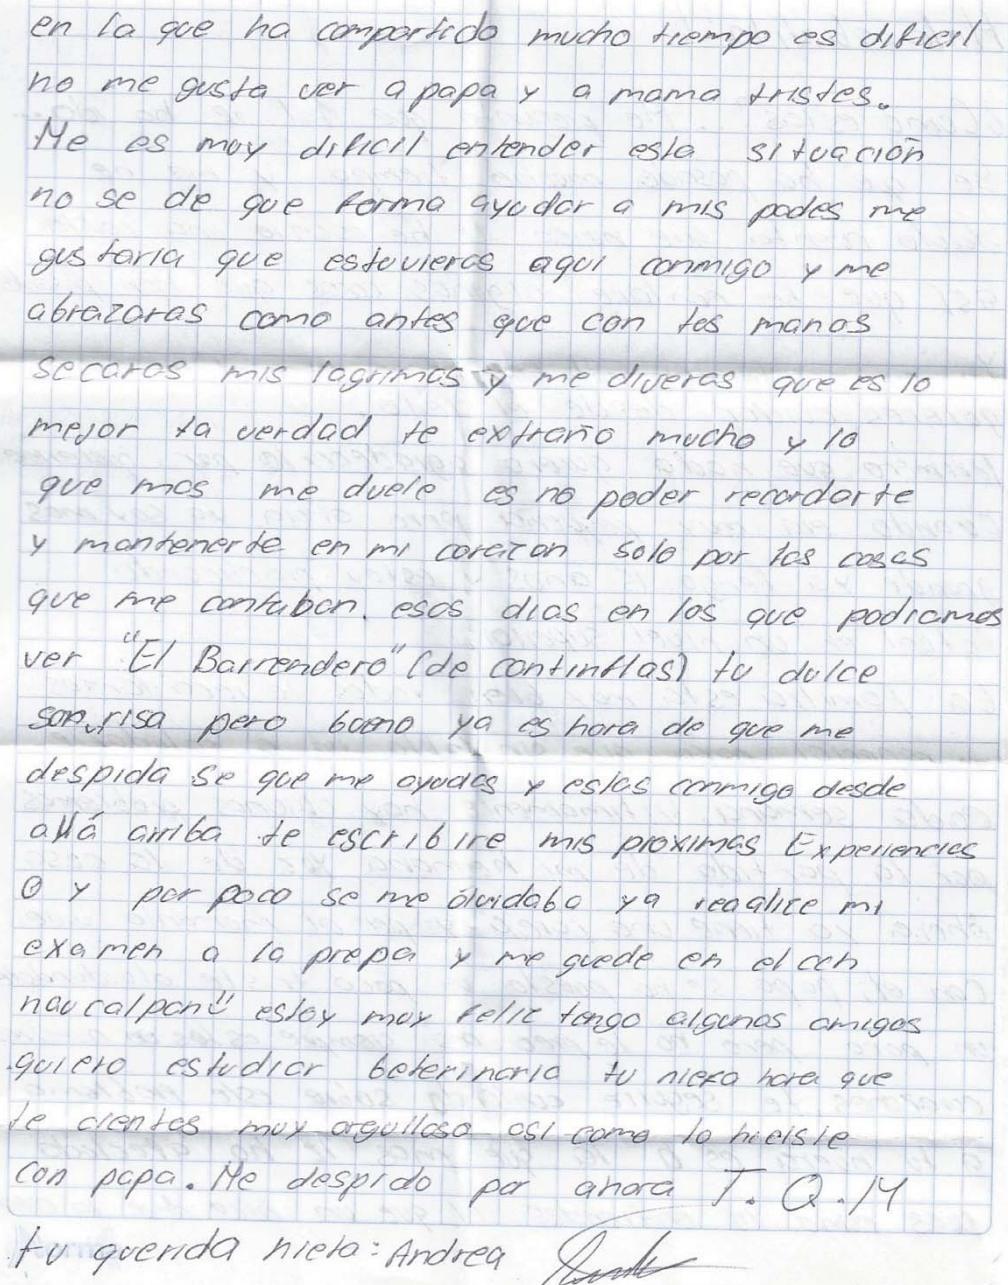 en la que ha compartido mucho tiempo es dificil
no me gusta ver a papa y a mama tristes.
Me es muy dificil entender esta situación
no se de que forma ayudar a mis padres me
gustaria que estuvieras aqui conmigo y me
abrazaras como antes que con tus manos
secaras mis lagrimas y me diveras que es lo
mejor la verdad te extraño mucho y lo
que mas me duele es no poder recordarte
y mantenerte en mi corazon solo por las cosas
que me contaban. esos dias en los que podiamos
ver "El Barrendero" (de continflas) tu dulce
sonrisa pero bueno ya es hora de que me
despida se que me ayudas y estas conmigo desde
allá arriba te escribire mis proximas Experiencias
O y por poco se me olvidaba ya reaalice mi
examen a la prepa y me quede en el cch
naucalpan" estoy muy feliz tengo algunos amigos
quiero estudiar beterinaria tu nieta hara que
te cientas muy orgulloso asi como lo hiciste
con papa. Me despido por ahora T. Q. M
tu querida nieta: Andrea